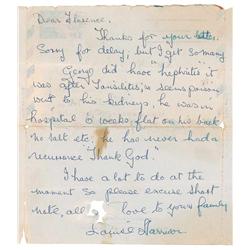 Dear Florence.
Thanks for your letter.
Sorry for delay, but I get so many
Georg did have "nephritis" it
was after Tonsilitis, seems poison
went to his kidneys, he was in
hospital 6 weeks flat on his back
no salt etc he has never had a
recurrance "Thank God."
I have a lot to do at the
moment so please excuse short
note, all love to your family
Louise Harrison